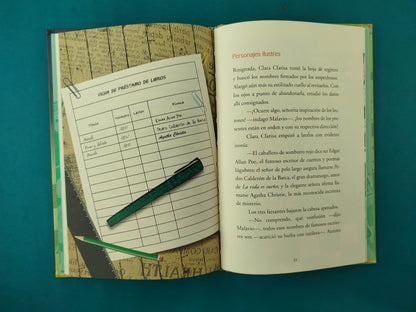 FICHA DE PRÉSTAMO DE LIBROS
Firma
Edgar Allan Poe
Pedro Calderón de la Barca
Agatha Christie
Personajes ilustres
Resignada, Clara Clarisa tomó la hoja de registro
y buscó los nombres firmados por los sospechosos.
Alargó aún más su estilizado cuello al revisarlos. Con
los ojos a punto de abandonarla, estudió los datos
allí consignados.
—¿Ocurre algo, señorita inspiración de los lectores?
—indagó Malavio—, ¿los nombres de los pre-
sentes están en orden y con su respectiva dirección?
Clara Clarisa empezó a leerlos con evidente
ironía:
—El caballero de sombrero rojo dice ser Edgar
Allan Poe, el famoso escritor de cuentos y poemas
lúgubres; el señor de pelo largo asegura llamarse Pe-
dro Calderón de la Barca, el gran dramaturgo, autor
de La vida es sueño; y la elegante señora afirma lla-
marse Agatha Christie, la más reconocida escritora
de misterio.
Los tres farsantes bajaron la cabeza apenados.
—No comprendo, qué confusión —dijo
Malavio—, todos esos nombres de famosos escrito-
res son... —acarició su bufanda
31